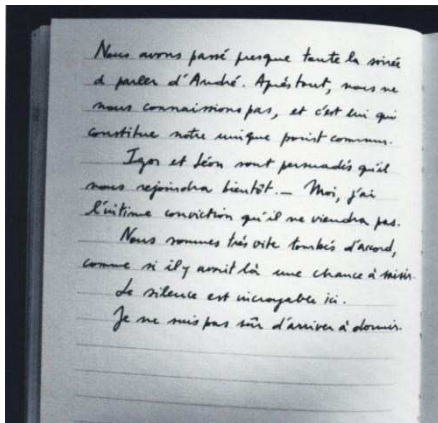 Nous avons passé presque toute la soirée
à parler d'André. Après tout, nous ne
nous connaissions pas, et c'est lui qui
constitue notre unique point commun.
Igor et Léon sont persuadés qu'il
nous rejoindra bientôt. — Moi, j'ai
l'intime conviction qu'il ne viendra pas.
Nous sommes très vite tombés d'accord,
comme si il y avait là une chance à saisir.
Le silence est incroyable ici.
Je ne suis pas sûr d'arriver à dormir.